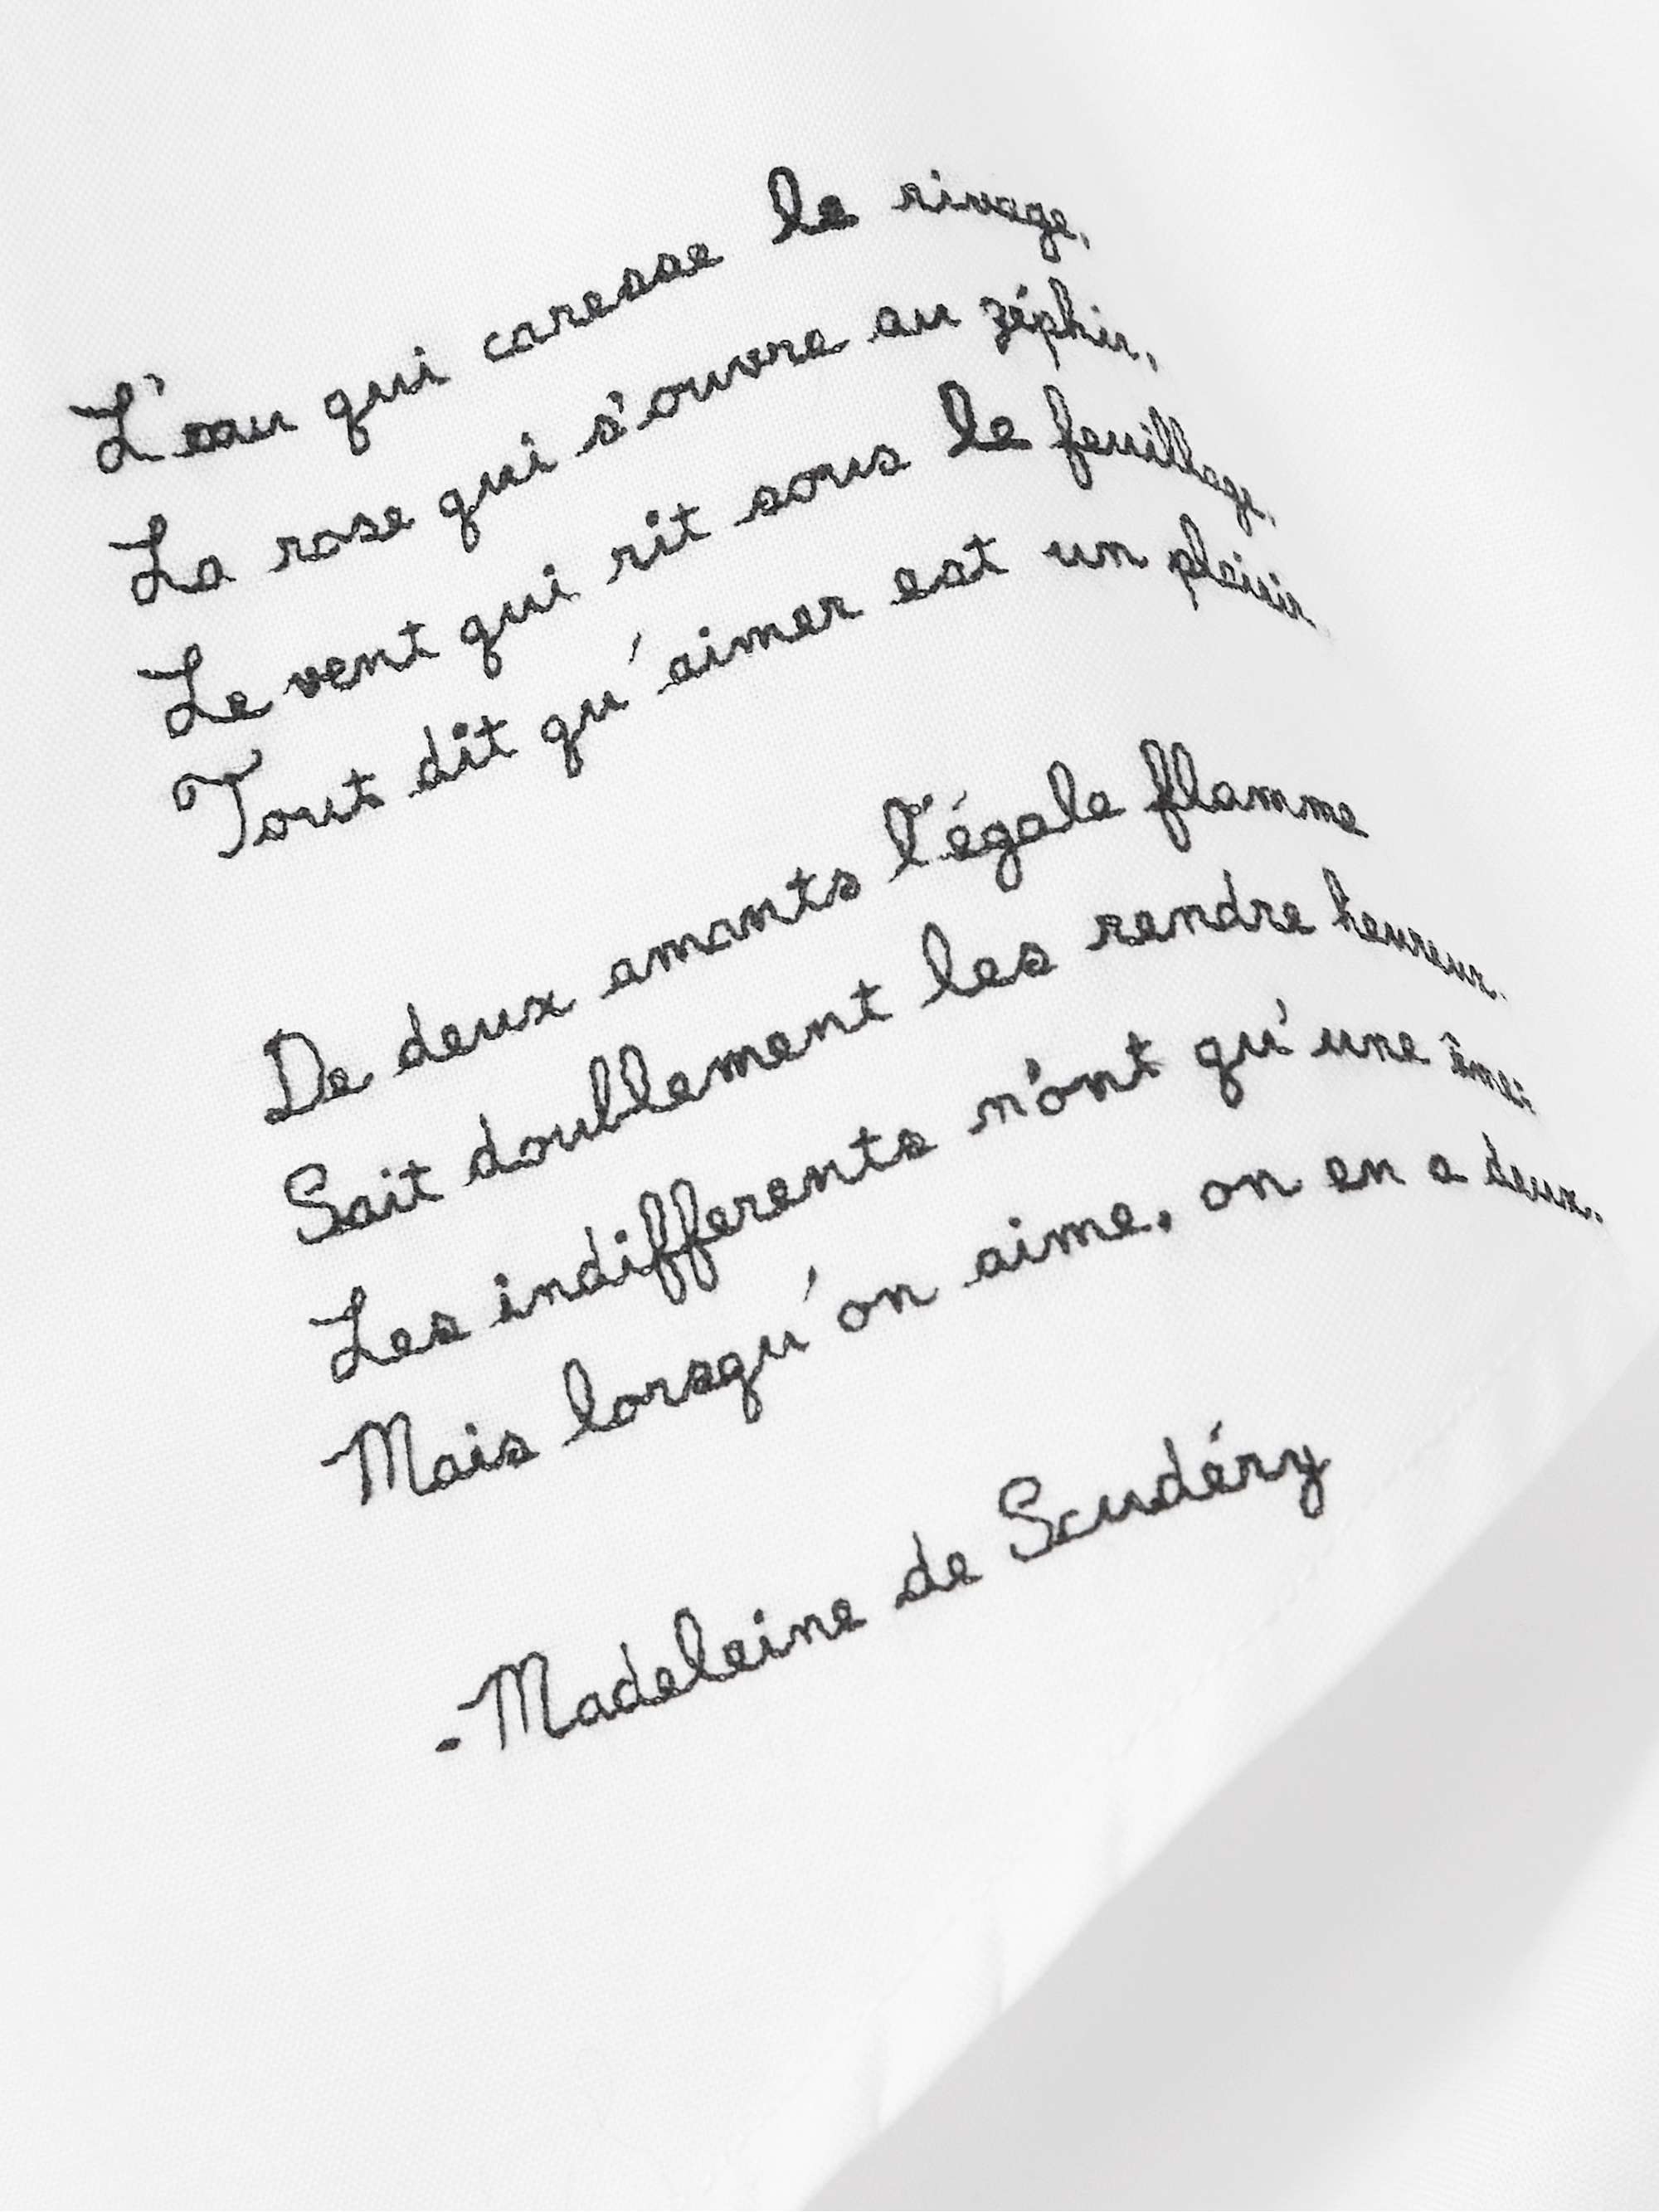 L'eau qui caresse le rivage,
La rose qui s'ouvre au zéphir,
Le vent qui rit sous le feuillage,
Tout dit qu'aimer est un plaisir.
De deux amants l'égale flamme
Sait doublement les rendre heureux.
Les indifferents n'ont qu'une âme;
Mais lorsqu'on aime, on en a deux.
-Madeleine de Scudéry